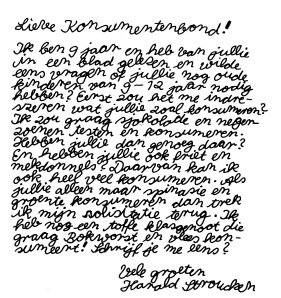 Lieve Konsumentenbond!
Ik ben 9 jaar en heb van jullie
in een blad gelesen en wilde
eens vragen of jullie nog oude
kinderen van 9-12 jaar nodig
hebben? Eerst zou het me intre-
szeren wat jullie zoal konsumeren?
Ik zou graag sjokolade en neger-
zoenen testen en konsumeren.
Hebben jullie dan genoeg daar?
En hebben jullie ook friet en
mekdonnels? Daarvan kan ik
ook heel veel konsumeren. Als
jullie alleen maar spinasie en
groente konsumeren dan trek
ik mijn solisitatie terug. Ik
heb nog een toffe klasgenoot die
graag Bokworst en vlees kon-
sumeert! Schrijf je me eens?
Vele groeten
Harald